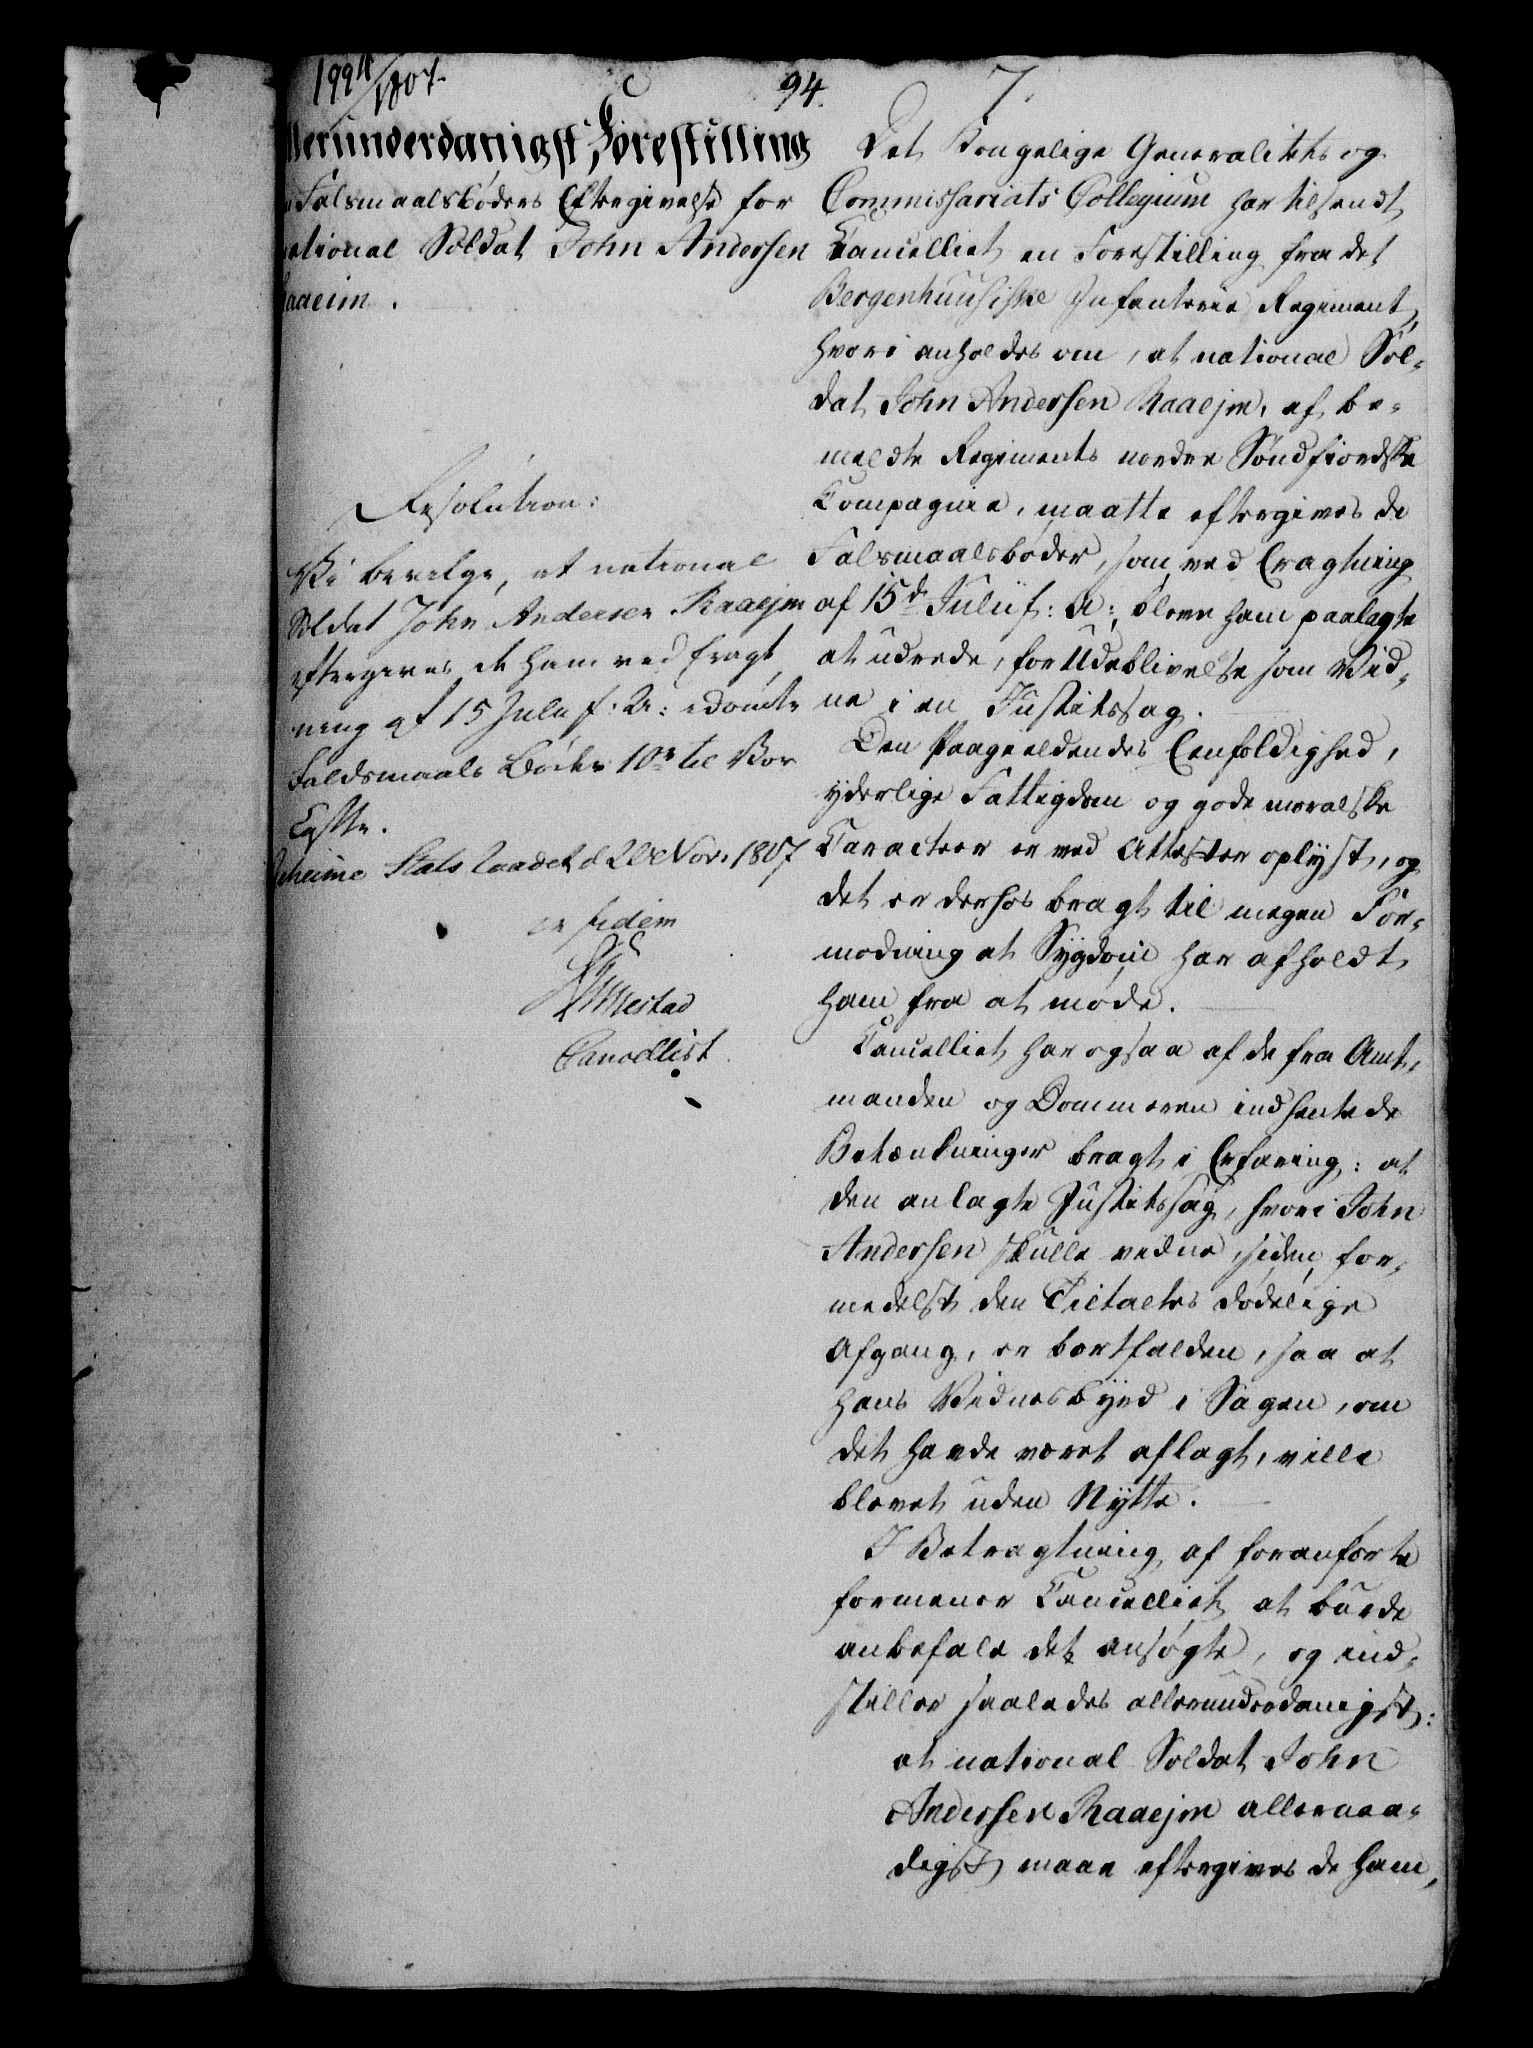 1994/1807.
94.
7.
llerunderdanigst Forestilling
Falsmaalsbøders Eftergivelse for
national Soldat John Andersen
aaeim.
Resolution:
Vi bevilge, at national
Soldat John Andersen Raaejm
eftergives de ham ved Eragt
ning af 15 Julii f: A: idømte
Faldsmaals Bøder 10 rd til Vor
Casse.
Geheime Stats Raadet d. Nov. 1807
ex fidem
Cancellist
Det Kongelige Generalitets og
Commissariats Collegium har tilsendt
Cancelliet en Forestilling fra det
Bergenhuusiske Infanterie Regiment,
hvori anholdes om, at national Sol-
dat John Andersen Raaejm, af be-
meldte Regiments nordre Søndfiordske
Compagnie, maatte eftergives de
Falsmaalsbøder, som ved Eragtning
af 15de Julii f: A: bleve ham paalagte
at udrede, for Udeblivelse som Vid-
ne i en Justitssag.
Den Paagieldendes Eenfoldighed,
yderlige Fattigdom og gode moralske
Caracteer er ved Attester oplyst, og
det er derhos bragt til megen For-
modning at Sygdom har afholdt
ham fra at møde.
Cancelliet har ogsaa af de fra Amt-
manden og Dommeren indhentede
Betænkninger bragt i Erfaring: at
den anlagte Justitssag, hvori John
Andersen skulle vidne, siden for-
medelst den Tiltaltes dødelige
Afgang, er bortfalden, saa at
hans Vidnesbyrd i Sagen, om
det havde været aflagt, ville
blevet uden Nytte.
I Betragtning af foranførte
formener Cancelliet at burde
anbefale det ansøgte, og ind-
stiller saaledes allerunderdanigst:
at national Soldat John
Andersen Raaejm allernaa-
digst maae eftergives de ham,